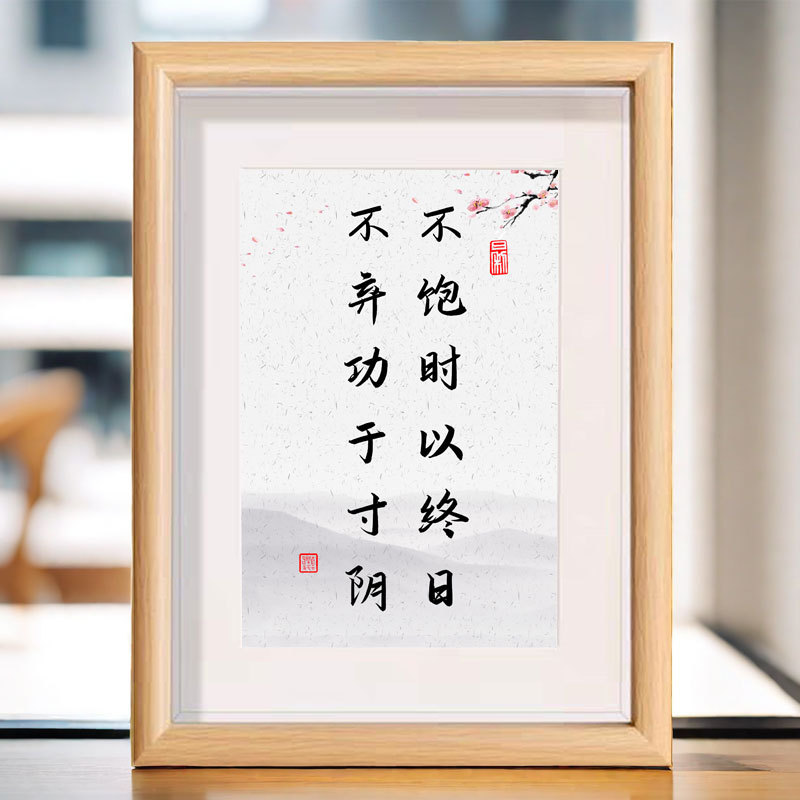 不饱时以终日
不弃功于寸阴
日新